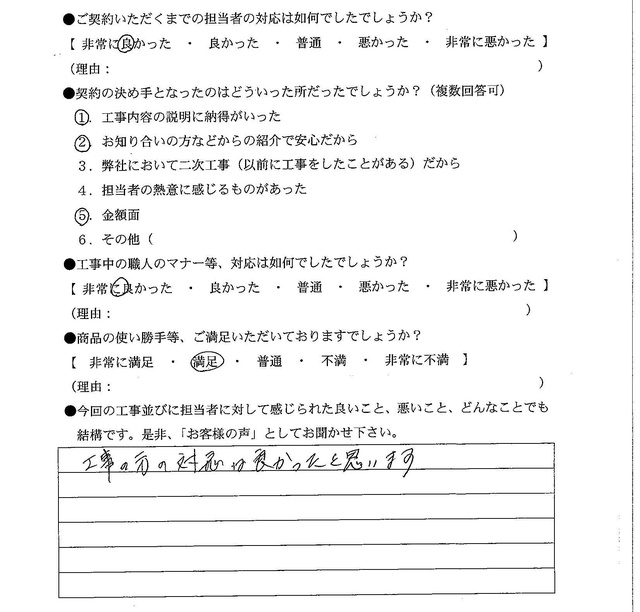 ●ご契約いただくまでの担当者の対応は如何でしたでしょうか?
【 非常に良かった ・ 良かった ・ 普通 ・ 悪かった ・ 非常に悪かった 】
(理由: )
●契約の決め手となったのはどういった所だったでしょうか?(複数回答可)
1. 工事内容の説明に納得がいった
2. お知り合いの方などからの紹介で安心だから
3. 弊社において二次工事(以前に工事をしたことがある)だから
4. 担当者の熱意に感じるものがあった
5. 金額面
6. その他( )
●工事中の職人のマナー等、対応は如何でしたでしょうか?
【 非常に良かった ・ 良かった ・ 普通 ・ 悪かった ・ 非常に悪かった 】
(理由: )
●商品の使い勝手等、ご満足いただいておりますでしょうか?
【 非常に満足 ・ 満足 ・ 普通 ・ 不満 ・ 非常に不満 】
(理由: )
●今回の工事並びに担当者に対して感じられた良いこと、悪いこと、どんなことでも
結構です。是非、「お客様の声」としてお聞かせ下さい。
工事の方の対応は良かったと思います